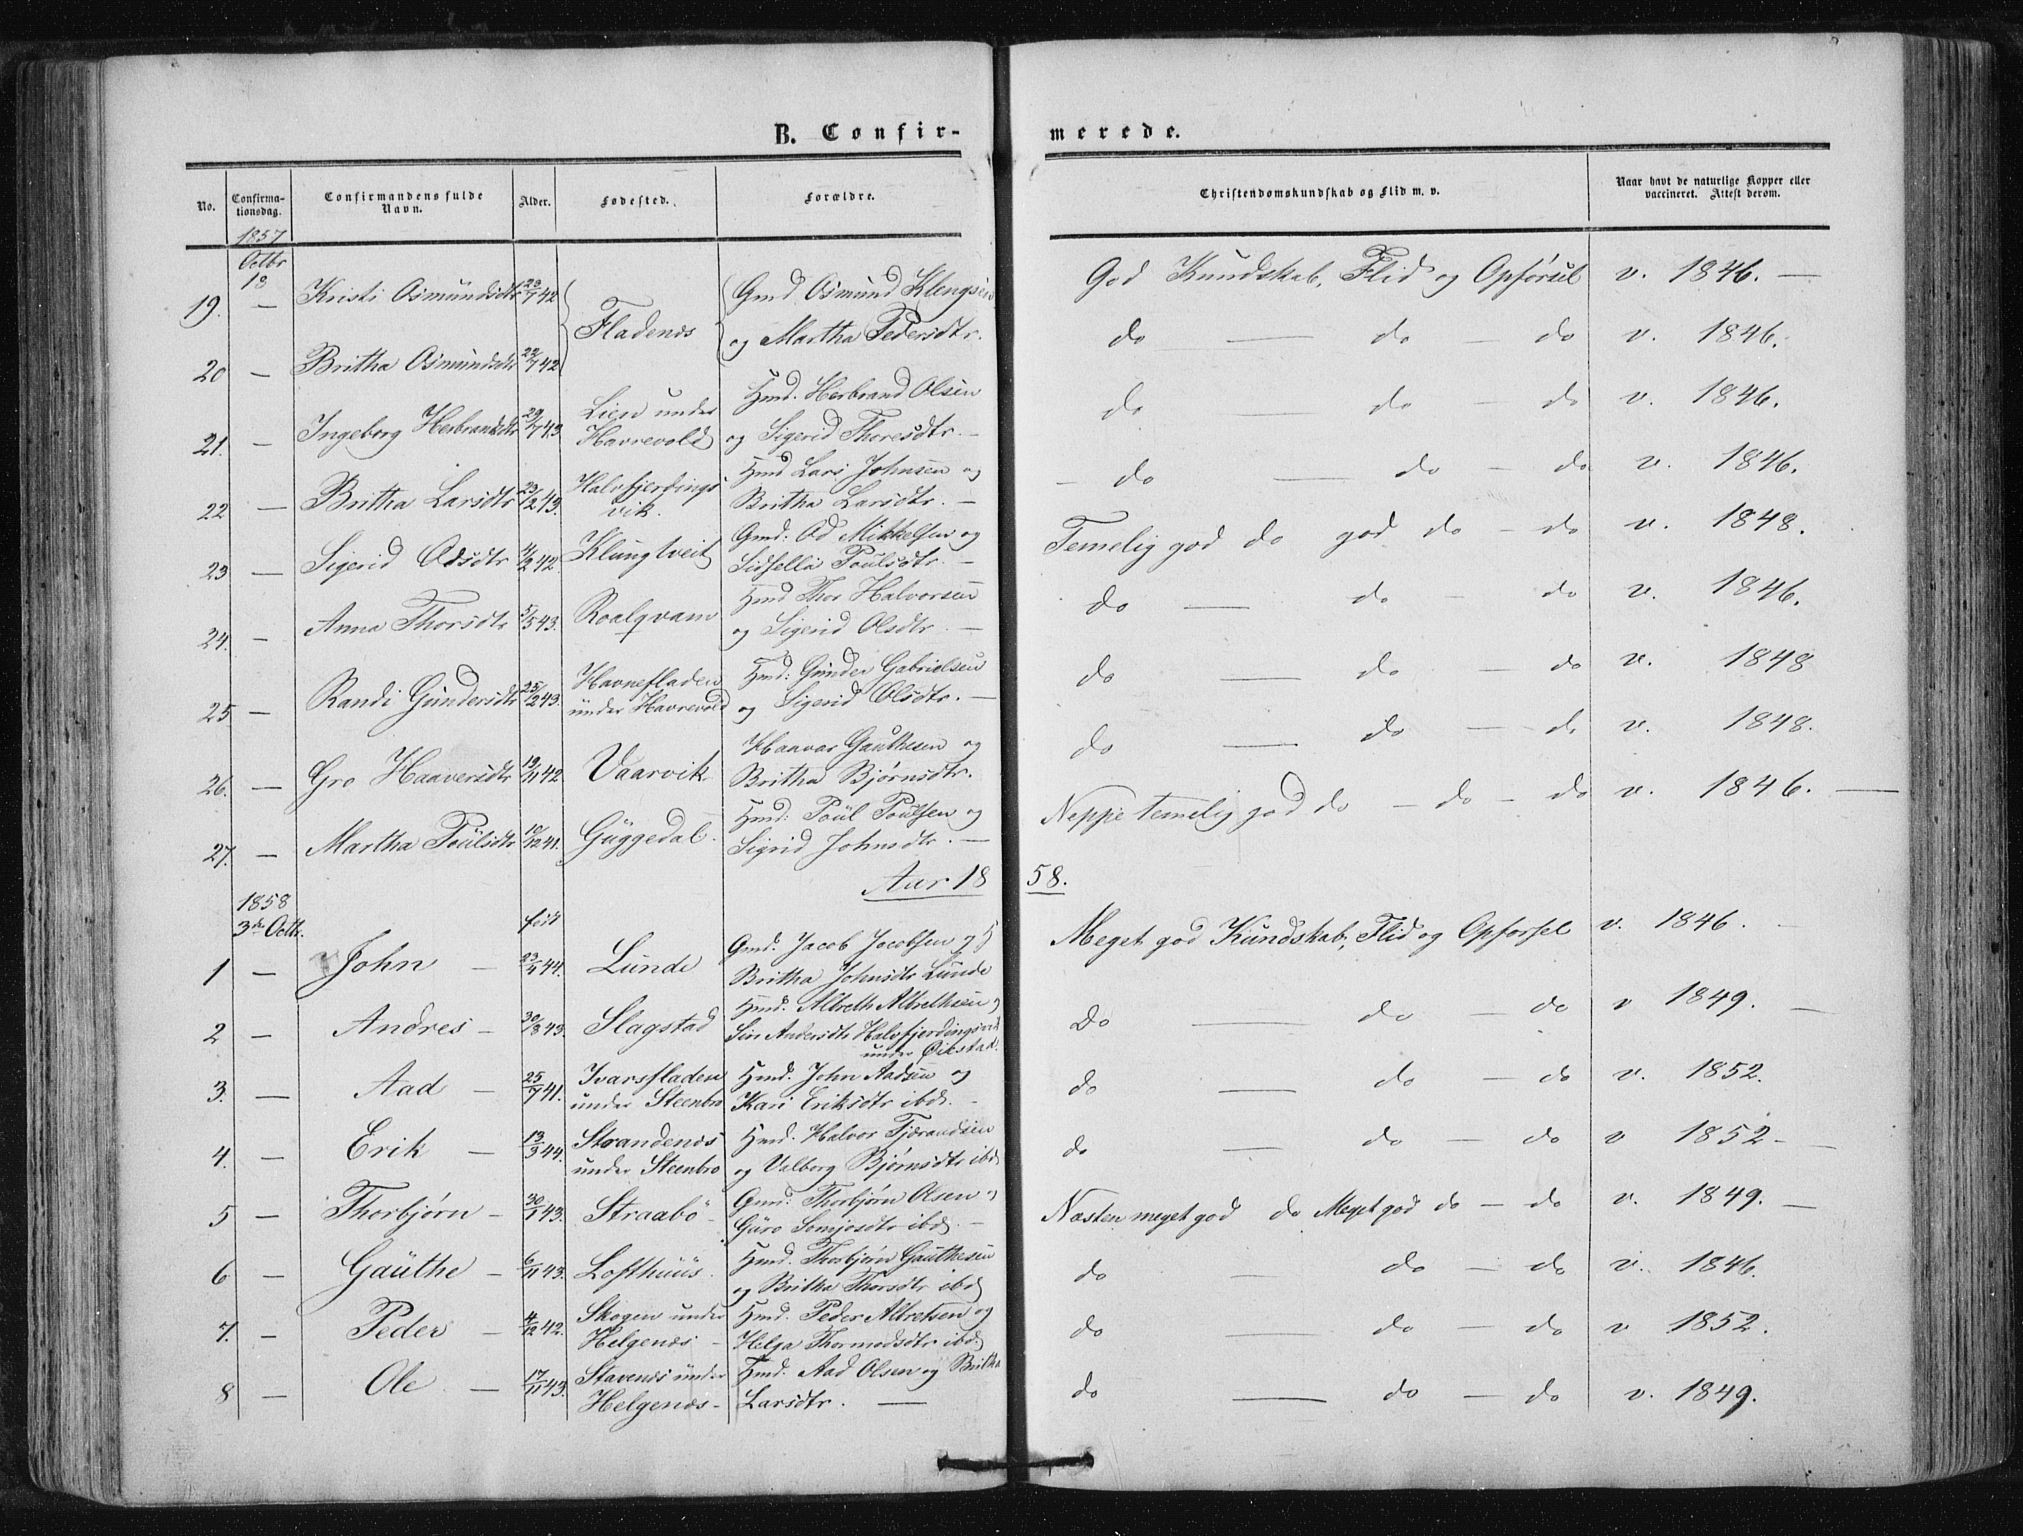 B. Confir-
merede.
No.
Confirma-
tionsdag.
Confirmandens fulde
Navn.
Alder.
Fødested.
Forældre.
Christendomskundskab og Flid m. v.
Naar havt de naturlige Kopper eller
vaccineret. Attest derom.
1857
Octbr
18
19. — Kristi Osmundsdtr 42 Fladenæs Gmd Osmund Klengsen
og Martha Pedersdtr. God Kundskab, Flid og Opførsel v. 1846. —
20 — Britha Osmundsdtr 22/7 42 do — do — do v. 1846.
21. — Ingeborg Herbrandsdtr 43 Lien under
Havrevold Hmd. Herbrand Olsen
og Sigerid Thoresdtr. — do — do — do v. 1846.
22 — Britha Larsdtr 23/12 43. Halvfjerdings
vik. Hmd Lars Johnsen og
Britha Larsdtr. — do — do — do v. 1846.
23 — Sigerid Odsdtr 42. Klungtveit Gmd: Od Mikkelsen og
Sidsella Poulsdtr. — Temelig god do god do — do v. 1848.
24. — Anna Thorsdtr 5/5 43. Roalqvam Hmd Thor Halvorsen
og Sigerid Olsdtr. — do — do — do v. 1846.
25 — Randi Gundersdtr 25/2 43. Havnefladen
under Havrevold Hmd: Gunder Gabrielsen
og Sigerid Olsdtr. — do — do — do v. 1848
26. — Gro Haaversdtr 42. Vaarvik Haavar Gauthesen og
Britha Bjørnsdtr. do — do — do v. 1848.
27. — Martha Poulsdtr 10/12 41. Guggedal. Hmd: Poul Poulsen og
Sigrid Johnsdtr. — Neppe temelig god do — do — do v. 1846. —
Aar 18 58.
1858
3die Octbr.
født
1 — John — 44. Lunde Gmd. Jacob Jacobsen og
Britha Johnsdtr Lunde Meget god Kundskab, Flid og Opførsel v. 1846. —
2 — Andres — 30/8 43. Slagstad Hmd. Albreth Albrethsen og
Siri Andersdtr Halvfjerdingsvik
under Økstad. Do — do — do v 1849. —
3. — Aad — 25/7 41. Ivarsfladen
under Steenbro Hmd. John Aadsen og
Kari Eriksdtr ibd. — do — do — do v. 1852.
4. — Erik — 13/3 44. Strandenæs
under Steenbro Hmd. Halvor Tjærandsen
og Valborg Bjørnsdtr ibd do — do — do v 1852 —
5 — Thorbjørn — 30/1 43. Straabø Gmd: Thorbjørn Olsen og
Guro ibd. — Næsten meget god do Meget god do — do v. 1849. —
6 — Gauthe — 6/11 43. Lofthuus. Hmd. Thorbjørn Gauthesen
og Britha Thorsdtr ibd do — do — do v. 1846.
7. — Peder — 4/12 42. Skogen under
Helgenæs — Hmd. Peder Albretsen og
Helga Thormodsdtr ibd. do — do — do v 1852.
8 — Ole — 17/11 43. Stavenæs under
Helgenæs — Hmd. Aad Olsen og Britha
Larsdtr. — do — do — do v. 1849.